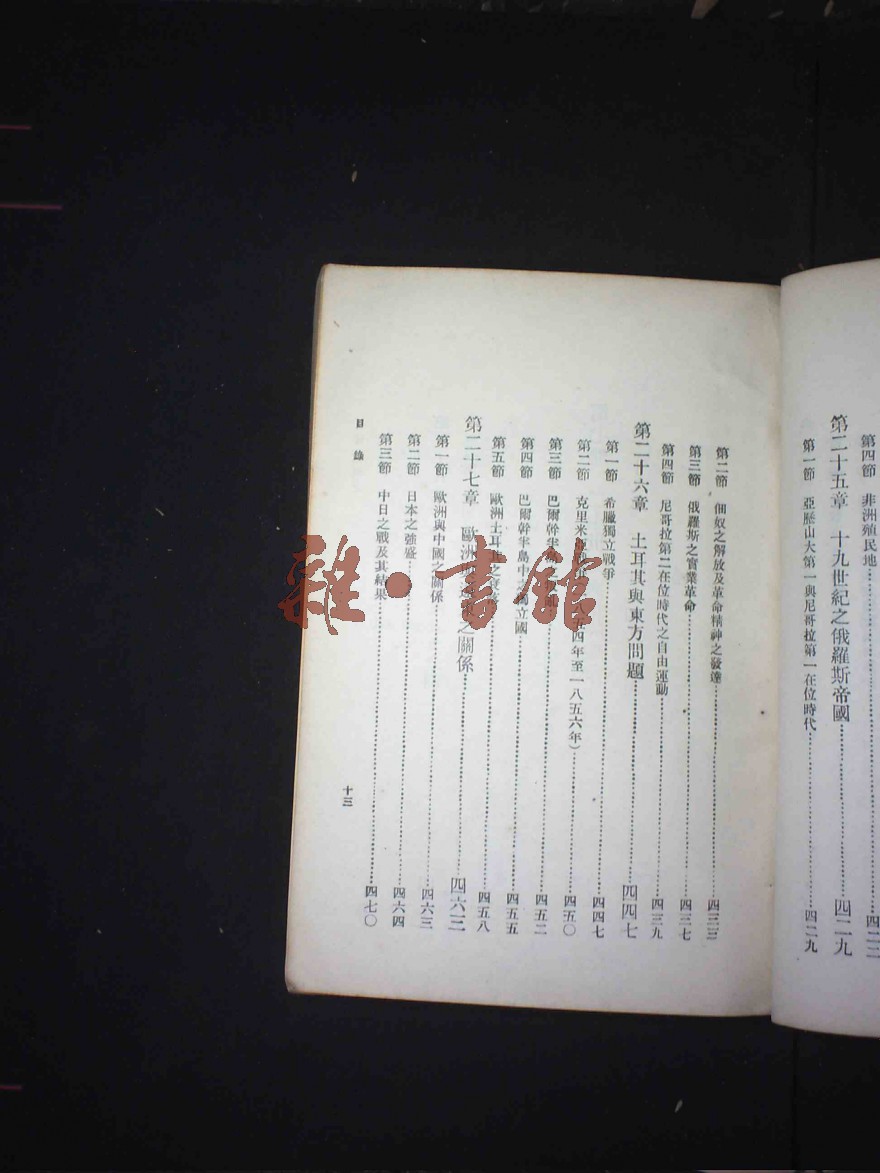 第四節 非洲殖民地
四二二
第二十五章 十九世紀之俄羅斯帝國 四二九
第一節 亞歷山大第一與尼哥拉第一在位時代 四二九
第二節 佃奴之解放及革命精神之發達 四三三
第三節 俄羅斯之實業革命 四三七
第四節 尼哥拉第二在位時代之自由運動 四三九
第二十六章 土耳其與東方問題 四四七
第一節 希臘獨立戰爭 四四七
第二節 克里米 八五四年至一八五六年) 四五〇
第三節 巴爾幹半島 四五二
第四節 巴爾幹半島中 獨立國 四五五
第五節 歐洲土耳其之 四五八
第二十七章 歐洲 之關係 四六三
第一節 歐洲與中國之關係 四六三
第二節 日本之強盛 四六四
第三節 中日之戰及其結果 四七〇
目錄
十三
雜·書館